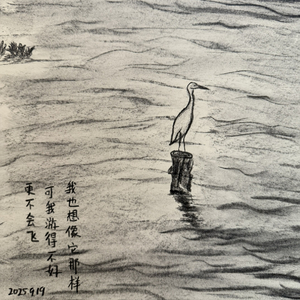 我也想像它那样
可我游得不好
更不会飞
2025 9 19